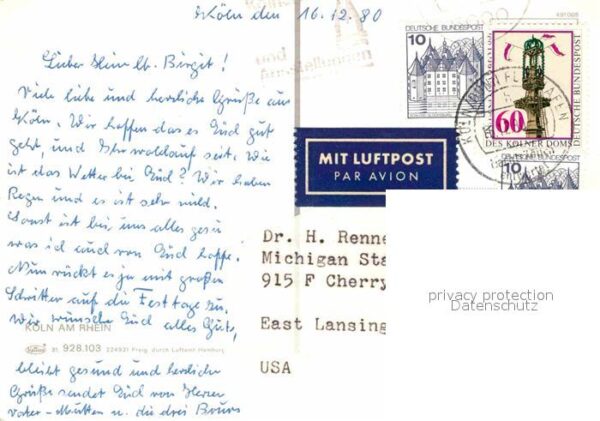 Köln den 16.12.80
Lieber Heim lb. Birgit!
Viele liebe und herzliche Grüße aus
Köln. Wir hoffen das es Euch gut
geht, und Ihr wohlauf seit. Wie
ist das Wetter bei Euch? Wir haben
Regen und es ist sehr mild.
Sonst ist bei uns alles gesu
was ich auch von Euch hoffe.
Nun rückt es ja mit großen
Schritten auf die Festtage zu.
Wir wünsche Euch alles Gute,
KÖLN AM RHEIN
31 928.103 224931 Freig. durch Luftamt Hamburg
bleibt gesund und herzliche
Grüße sendet Euch von Herzen
Vater - Mutter u. die drei
und
Ausstellungen
10
DEUTSCHE BUNDESPOST
60
DES KÖLNER DOMS
DEUTSCHE BUNDESPOST
DEUTSCHE BUNDESPOST
10
MIT LUFTPOST
PAR AVION
Dr. H. Renne
Michigan Sta
915 F Cherry
East Lansing
USA
privacy protection
Datenschutz